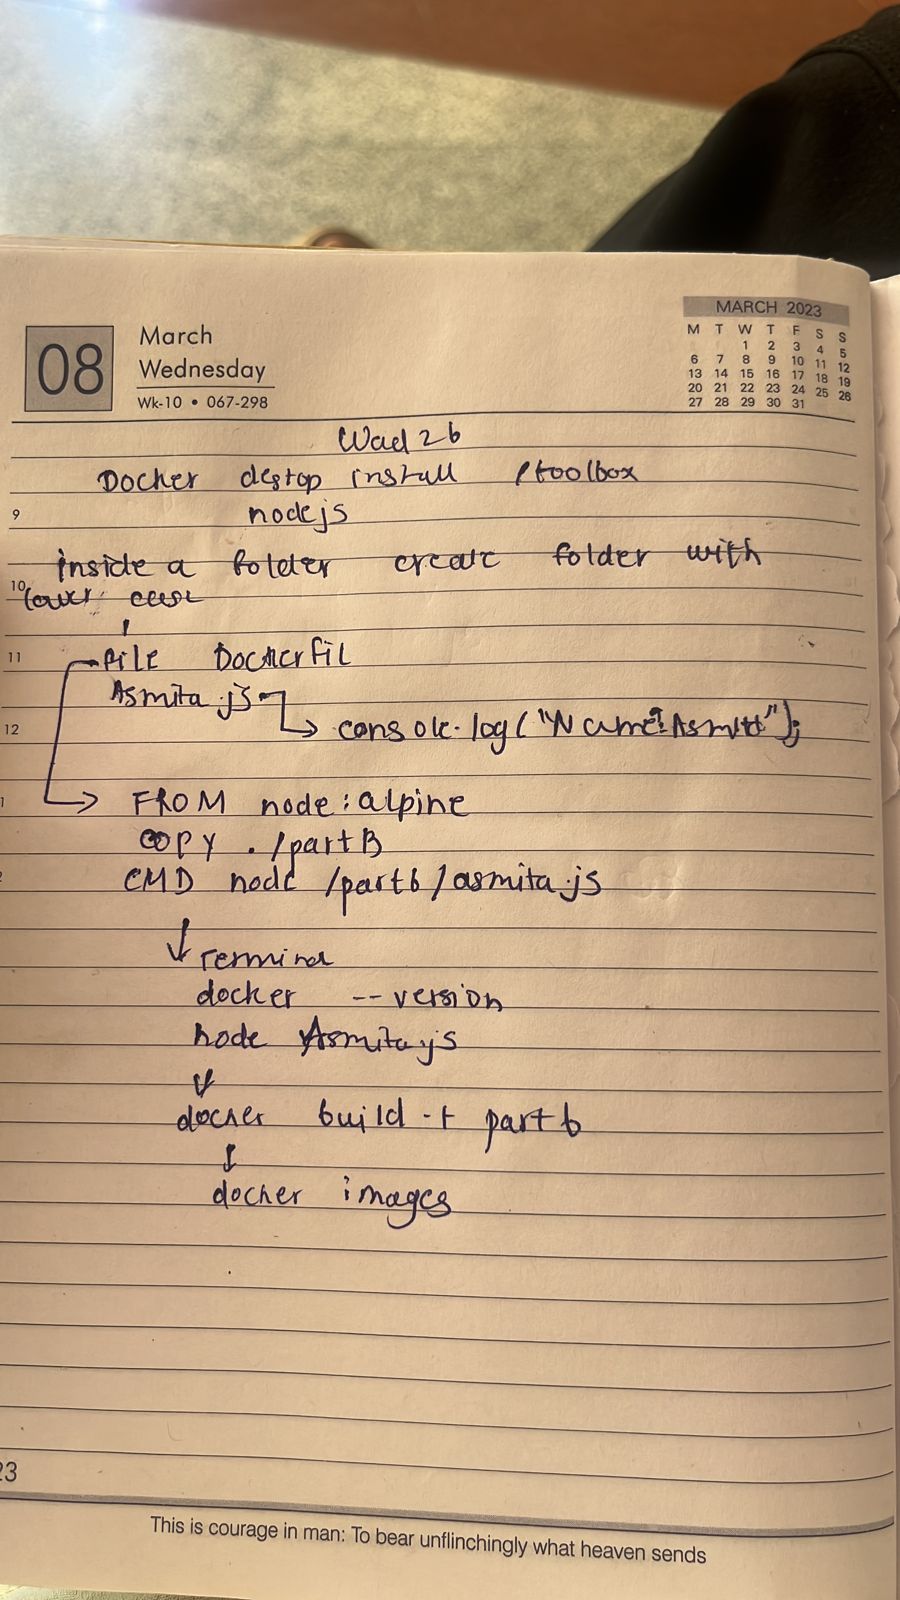 08
March
Wednesday
Wk-10 • 067-298
MARCH 2023
M T W T F S S
1 2 3 4 5
6 7 8 9 10 11 12
13 14 15 16 17 18 19
20 21 22 23 24 25 26
27 28 29 30 31
Wad 2b
Docker destop install /toolbox
9
nodejs
inside a folder create folder with
10
lower case
11
file Dockerfil
Asmita.js
12
console.log("Name:Asmita");
1
FROM node:alpine
COPY . /partB
2
CMD node /partb/asmita.js
Termina
docker --version
node Asmita.js
docker build -t partb
docker images
23
This is courage in man: To bear unflinchingly what heaven sends